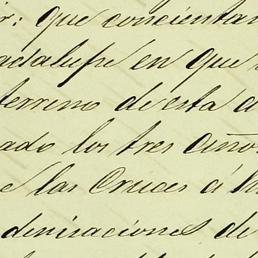 r: que concientan
adalupe en que
terreno de esta a
ado los tres años
e las Cruces á
denisaciones de